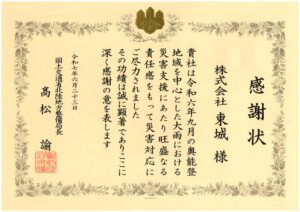 感謝状
株式会社 東城 様
貴社は令和六年九月の奥能登
地域を中心とした大雨における
災害支援にあたり旺盛なる
責任感をもって災害対応に
ご尽力されました
その功績は誠に顕著でありここに
深く感謝の意を表します
令和七年六月二十三日
国土交通省北陸地方整備局長
高松 諭